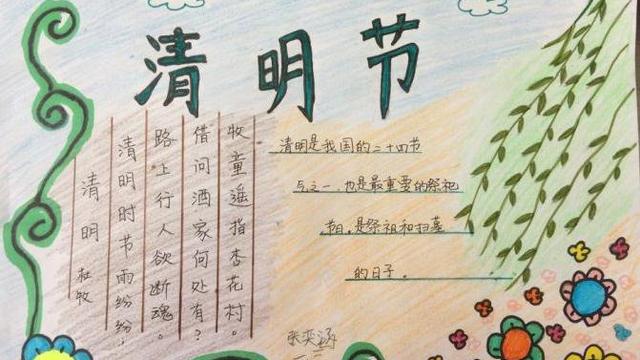 清明节
清明 杜牧
清明时节雨纷纷，
路上行人欲断魂。
借问酒家何处有？
牧童遥指杏花村。
清明是我国的二十四节
气之一，也是最重要的祭祀
节日，是祭祖和扫墓
的日子。
张奕涵